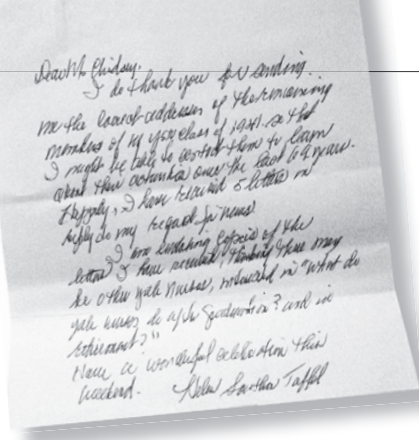 Dear Ms. Chidsey,
I do thank you for sending
me the list of addresses of the remaining
members of my YSN class of 1941 so that
I might be able to contact them to learn
about their activities over the last 69 years.
Happily, I have received 5 letters in
reply to my request for news.
I am enclosing copies of the
letters I have received, thinking there may
be other Yale Nurses, interested in "What do
Yale nurses do after graduation? and in
retirement?"
Have a wonderful celebration this
weekend. Helen Taffel